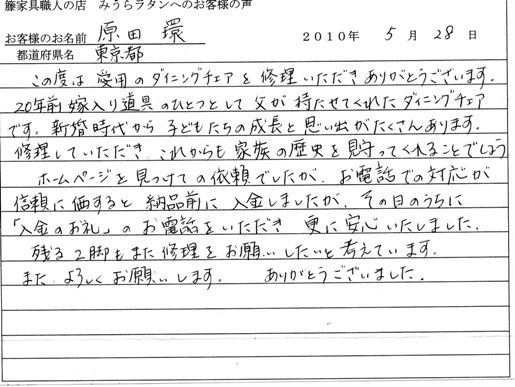 籐家具職人の店 みうらラタンへのお客様の声
お客様のお名前 原田 環 2010年 5月28日
都道府県名 東京都
この度は愛用のダイニングチェアを修理いただきありがとうございます。
20年前嫁入り道具のひとつとして父が持たせてくれたダイニングチェア
です。新婚時代から子どもたちの成長と思い出がたくさんあります。
修理していただき、これからも家族の歴史を見守ってくれることでしょう
ホームページを見つけての依頼でしたが、お電話での対応が
信頼に価すると納品前に入金しましたが、その日のうちに
「入金のお礼」のお電話をいただき 更に安心いたしました。
残る2脚もまた修理をお願いしたいと考えています。
また、よろしくお願いします。 ありがとうございました。